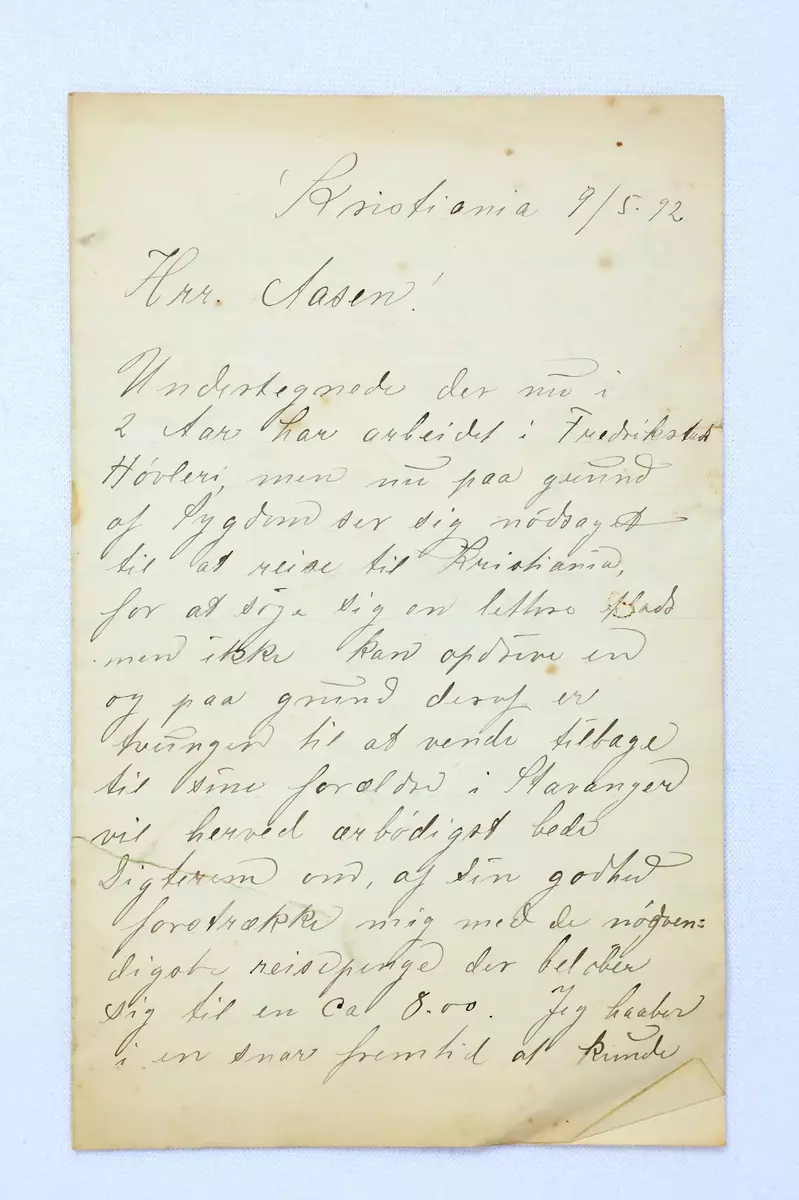 Kristiania 9/5.92
Hrr. Aasen!
Undertegnede der nu i
2 Aar har arbeidet i Fredrikstad
Høvleri, men nu paa grund
af Sygdom ser sig nødsaget
til at reise til Kristiania,
for at søge sig en lettere plads
men ikke kan opdrive en
og paa grund deraf er
tvungen til at vende tilbage
til sine forældre i Stavanger
vil herved ærbødigst bede
Digteren om, af sin godhed
forstrække mig med de nødven=
digste reisepenge der beløber
sig til en ca 8.00. Jeg haaber
i en snar fremtid at kunde